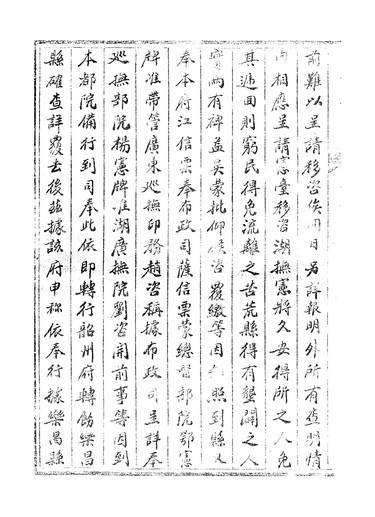 前難以呈請移咨俟 日另詳報明外所有查明情
由相應呈請憲臺移咨湖撫憲將久安得所之人免
其遞回則窮民得免流離之苦荒縣得有墾闢之人
實兩有裨益矣蒙批仰候咨覆繳等因 照到縣又
奉本府江信票奉布政司薩信票蒙總督部院鄂憲
牌准帶管廣東巡撫印務趙咨稱據布政司呈詳奉
巡撫部院楊憲牌准湖廣撫院劉咨開前事等因到
本部院備行到司奉此依即轉行韶州府轉飭樂昌
縣確查詳覆去後茲據該府申稱依奉行據樂昌縣